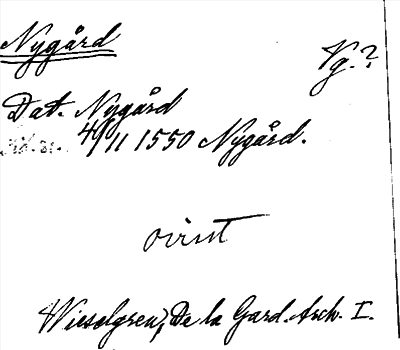 Nygård
Vg.?
Dat. Nygård
4/11 1550 Nygård.
ovisst
Wieselgren, De la Gard. Arch. I.